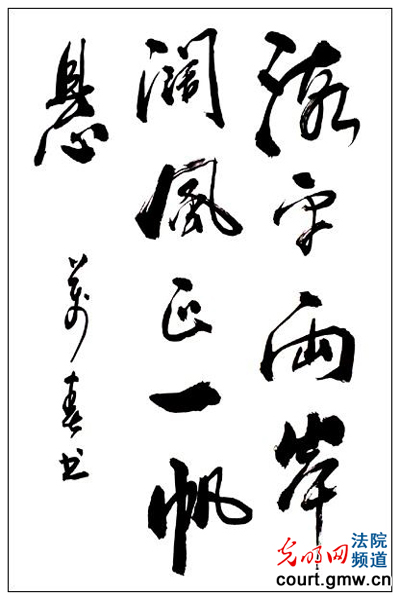 潮平兩岸
濶風正一帆
悬
萬春书
光明网
法院
频道
court.gmw.cn